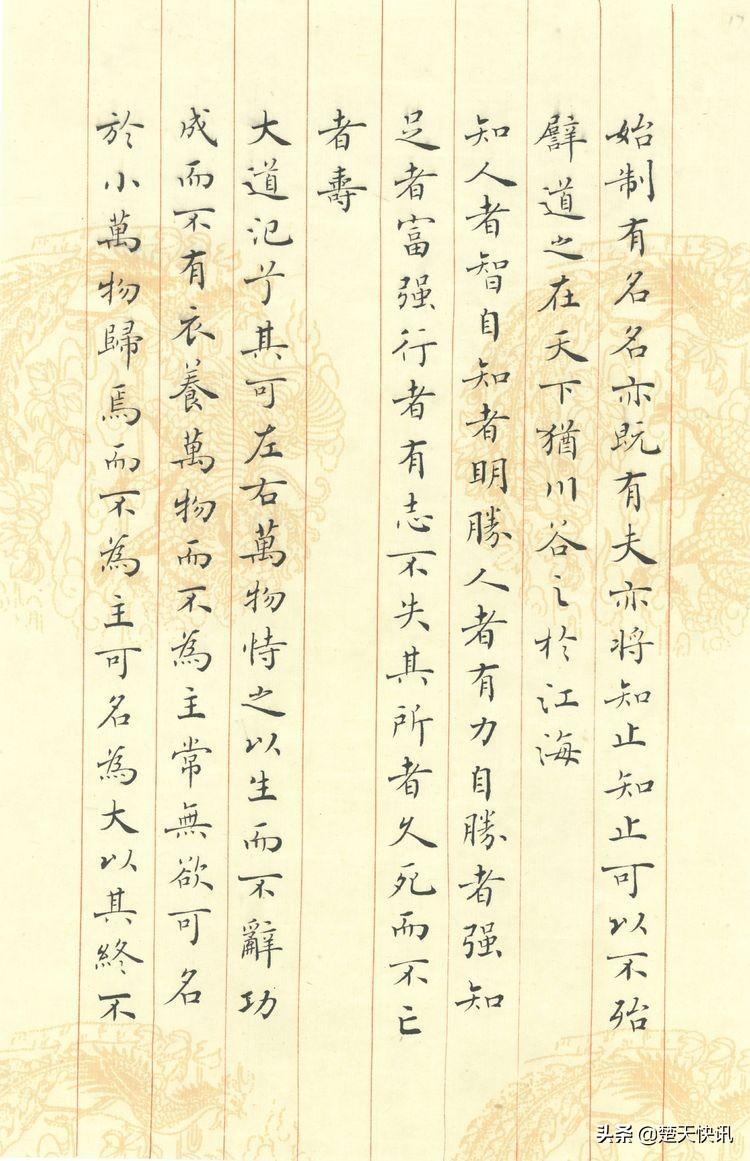 始制有名名亦既有夫亦将知止知止可以不殆
譬道之在天下猶川谷之於江海
知人者智自知者明勝人者有力自勝者强知
足者富强行者有志不失其所者久死而不亡
者壽
大道氾兮其可左右萬物恃之以生而不辭功
成而不有衣養萬物而不為主常無欲可名
於小萬物歸焉而不為主可名為大以其終不
头条 @楚天快讯